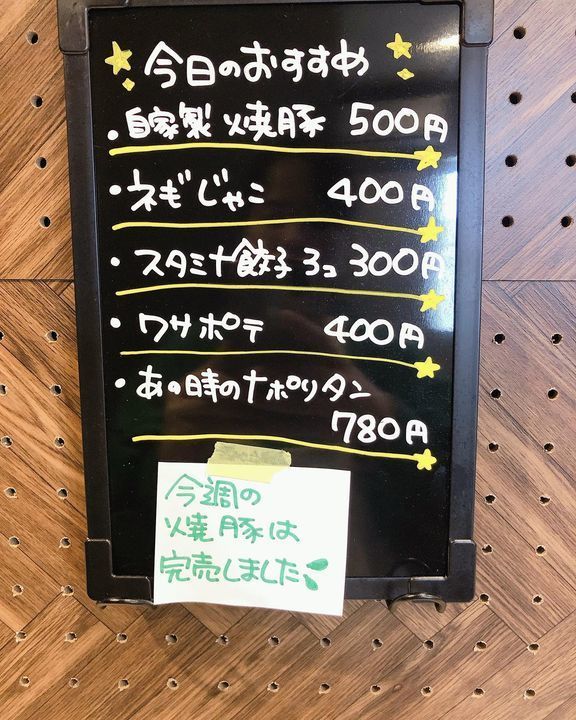 今日のおすすめ
・自家製 焼豚 500円
・ネギじゃこ 400円
・スタミナ餃子 3コ 300円
・ワサポテ 400円
・あの時のナポリタン
780円
今週の
焼豚は
完売しました